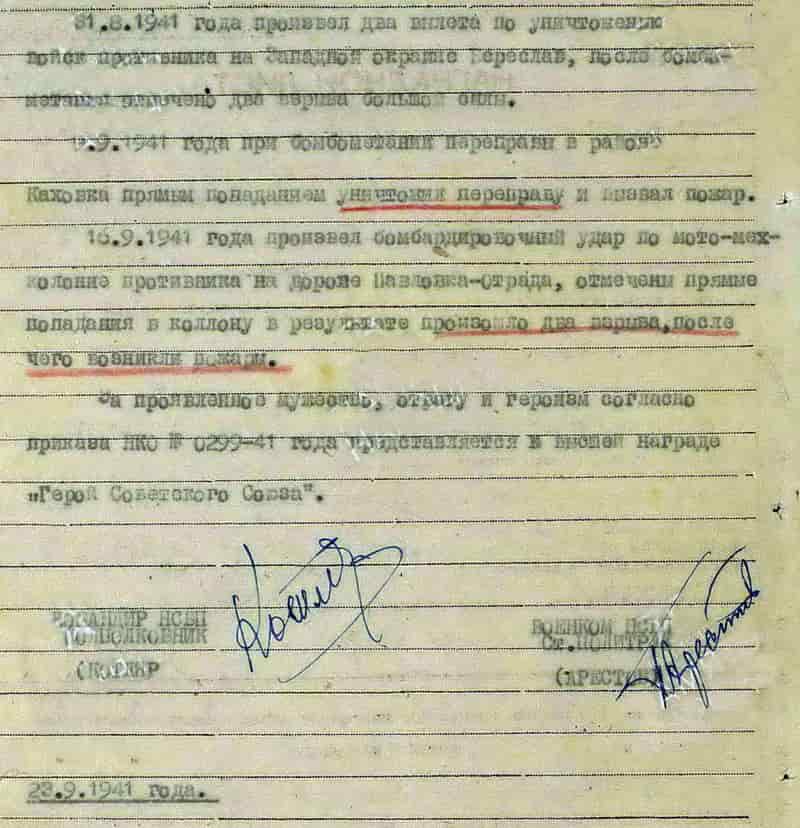 31.8.1941 года произвел два вылета по уничтожению
войск противника на Западной окраине Береслав, после бомбо-
метания отмечено два взрыва большой силы.
.9.1941 года при бомбометании переправы в районе
Каховка прямым попаданием уничтожил переправу и вызвал пожар.
16.9.1941 года произвел бомбардировочный удар по мото-мех-
колонне противника на дороге Павловка-Отрада, отмечены прямые
попадания в коллону в результате произошло два взрыва, после
чего возникли пожары.
За проявленное мужество, отвагу и героизм согласно
приказа НКО № 0299-41 года представляется к высшей награде
„Герой Советского Союза".
КОМАНДИР ВОЕНКОМ
ПОДПОЛКОВНИК Ст.ПОЛИТРУК
23.9.1941 года.